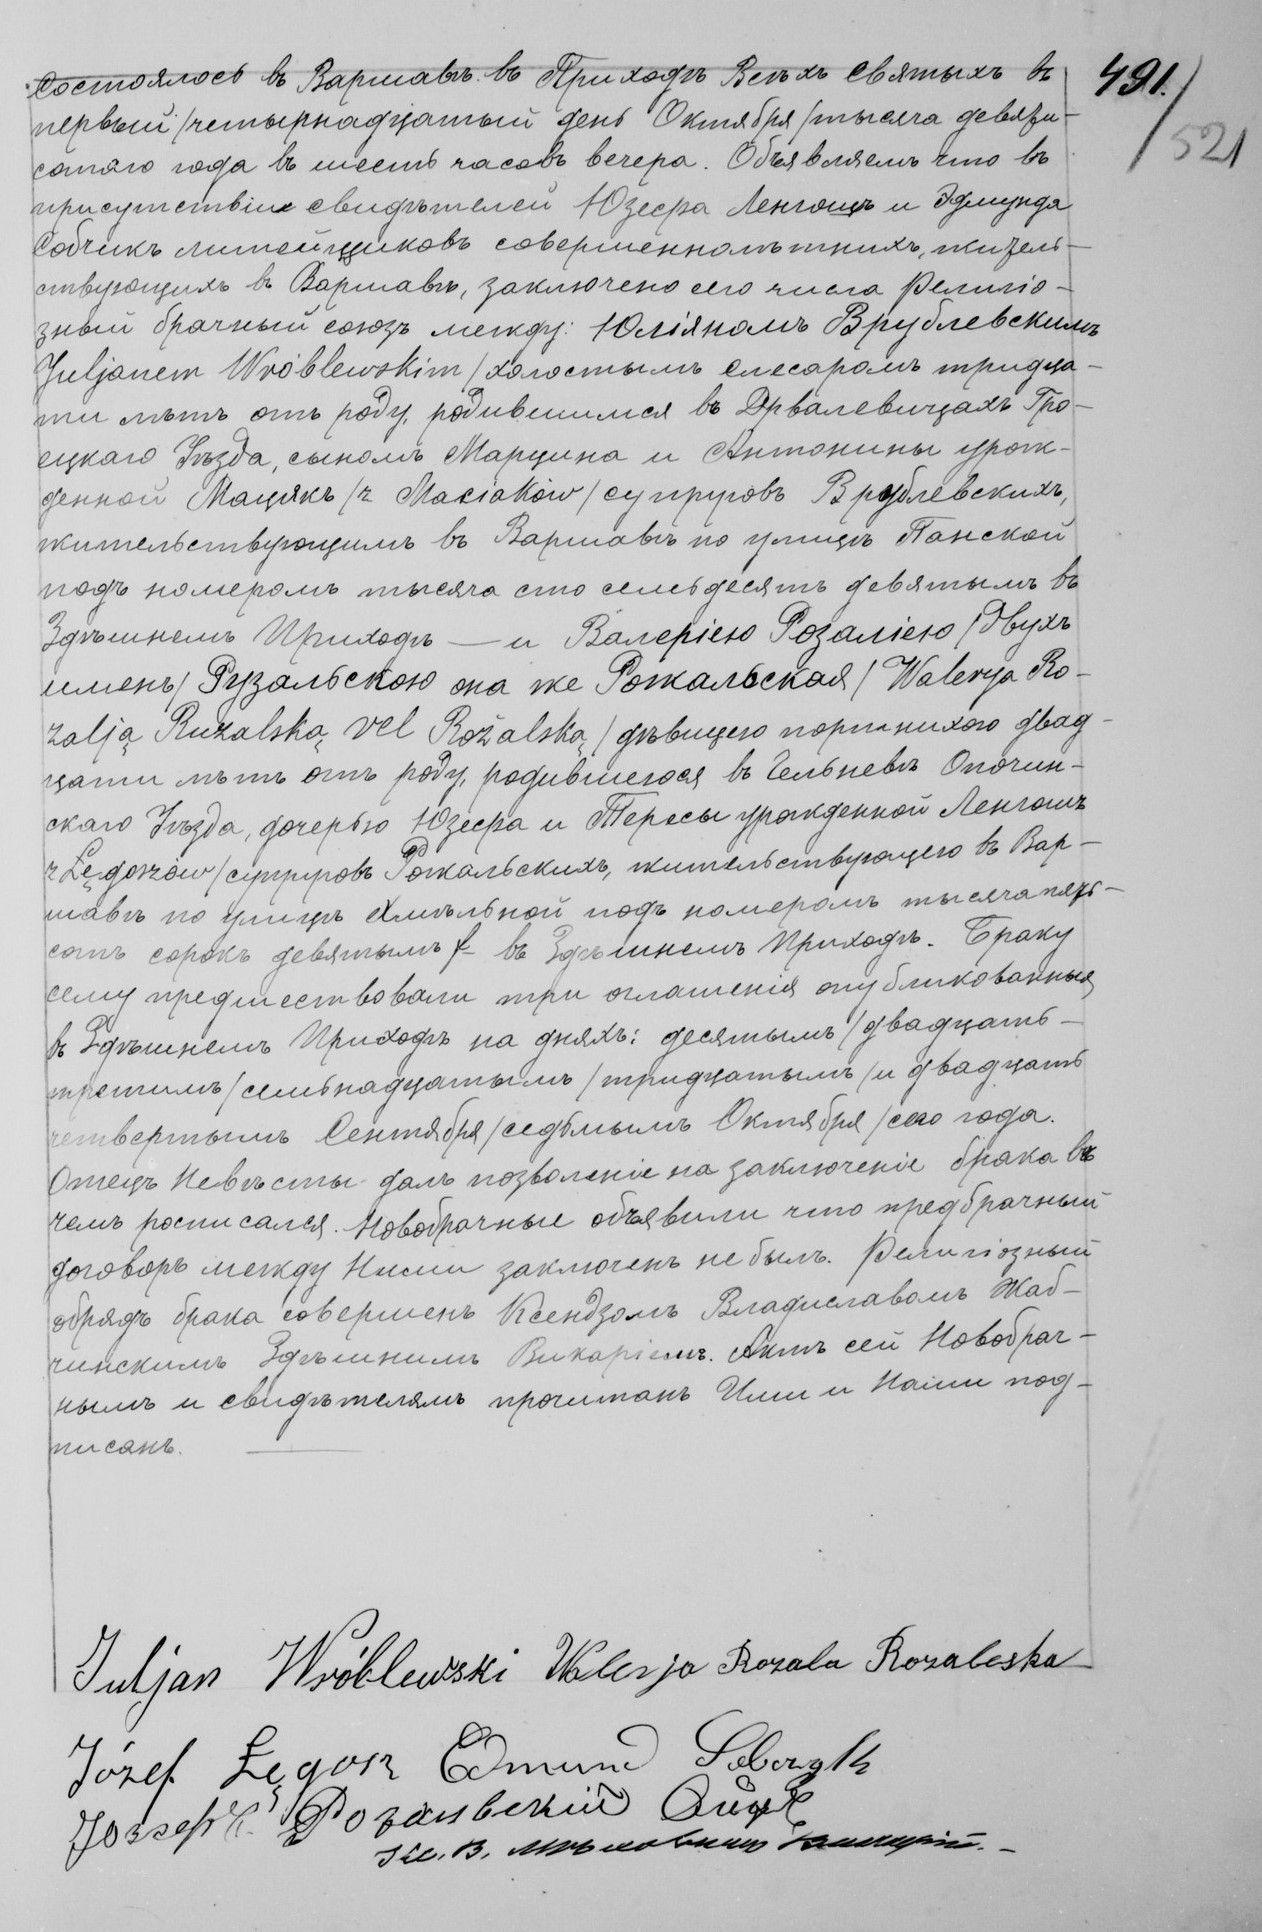 Состоялось въ Варшавѣ въ Приходѣ Всѣхъ Святыхъ въ
491.
521
первый /четырнадцатый день Октября /тысяча девяти-
сотаго года въ шесть часовъ вечера. Объявляемъ что въ
присутствіи свидѣтелей Юзефа Ленгошъ и Эдмунда
Собчикъ литейщиковъ совершеннолѣтнихъ, житель-
ствующихъ въ Варшавѣ, заключено сего числа Религіо-
зный брачный союзъ между: Юліяномъ Врублевскимъ
Juljanem Wróblewskim / холостымъ слесаромъ тридца-
ти лѣтъ отъ роду, родившимся въ Дрвалевицахъ Гро-
ецкаго Уѣзда, сыномъ Марцина и Антонины урож-
денной Мацякъ /z Maciaków/ супруговъ Врублевскихъ,
жительствующимъ въ Варшавѣ по улицѣ Панской
подъ номеромъ тысяча сто семьдесятъ девятымъ въ
Здѣшнемъ Приходѣ — и Валеріею Розаліею /двухъ
именъ/ Рузальскою она же Рожальская / Waleryą Ro-
zalją Ruzalską vel Rożalską / дѣвицею портнихою двад-
цати лѣтъ отъ роду, родившеюся въ Гельневѣ Опочин-
скаго Уѣзда, дочерью Юзефа и Тересы урожденной Ленгошъ
z Lęgoszów/ супруговъ Рожальскихъ, жительствующею въ Вар-
шавѣ по улицѣ Хмѣльной подъ номеромъ тысяча пять-
сотъ сорокъ девятымъ въ Здѣшнемъ Приходѣ. Браку
сему предшествовали три оглашенія опубликованныя
въ Здѣшнемъ Приходѣ на дняхъ: десятымъ /двадцать-
третимъ/ семьнадцатымъ /тридцатымъ/ и двадцать
четвертымъ Сентября /седьмымъ Октября / сего года.
Отецъ Невѣсты далъ позволеніе на заключеніе брака въ
чемъ росписался. Новобрачные объявили что предбрачный
договоръ между Ними заключенъ не былъ. Религіозный
обрядъ брака совершенъ Ксендзомъ Владиславомъ Жаб-
чинскимъ Здѣшнимъ Викаріемъ. Актъ сей Новобрач-
нымъ и свидѣтелямъ прочитанъ Ими и Нами под-
писанъ.
Juljan Wróblewski Walerja Rozala Rozaleska
Józef Lęgosz Edmund Sobczyk
Jozsef
Кс. В.